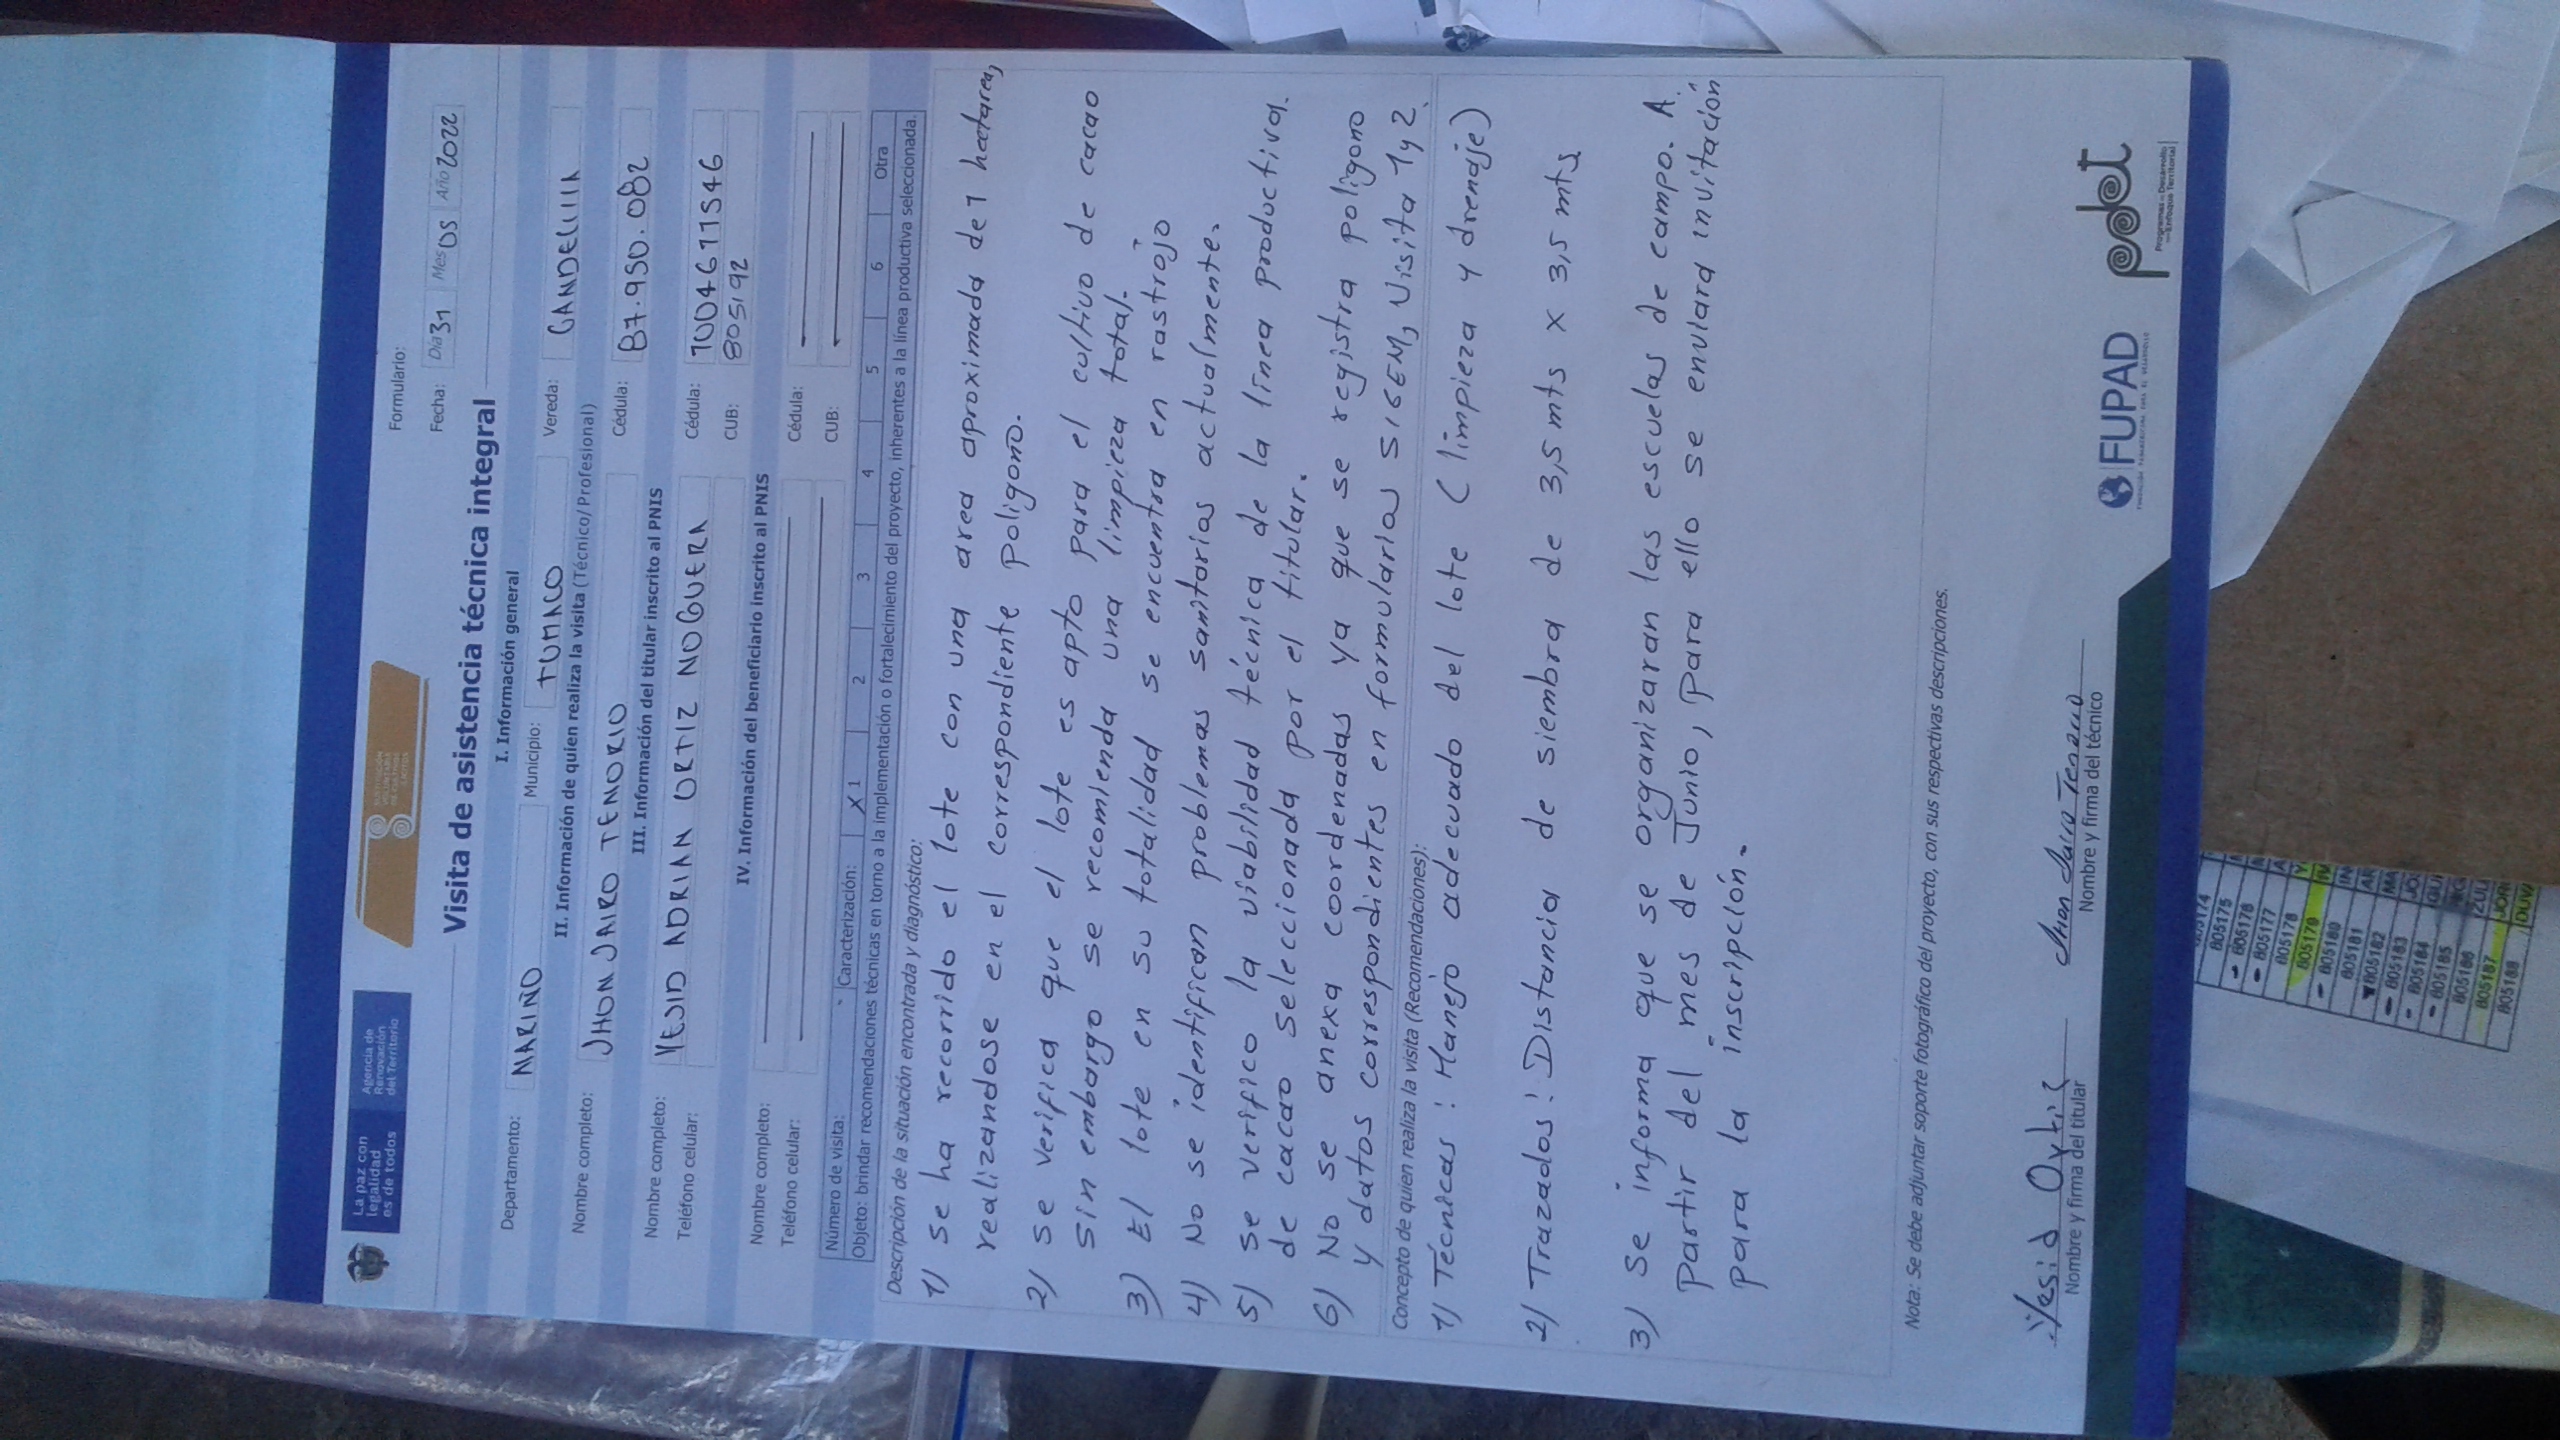 La paz con
legalidad
es de todos
Agencia de
Renovación
del Territorio
SUSTITUCIÓN
VOLUNTARIA
DE CULTIVOS
ILÍCITOS
Formulario:
Visita de asistencia técnica integral
Fecha: Día 31 Mes 05 Año 2022
I. Información general
Departamento: NARIÑO Municipio: TUMACO Vereda: CANDELILLA
II. Información de quien realiza la visita (Técnico/Profesional)
Nombre completo: JHON JAIRO TENORIO Cédula: 87.950.082
III. Información del titular inscrito al PNIS
Nombre completo: YESID ADRIAN ORTIZ NOGUERA Cédula: 1004611546
Teléfono celular: CUB: 805192
IV. Información del beneficiario inscrito al PNIS
Nombre completo: Cédula:
Teléfono celular: CUB:
Número de visita: Caracterización: X 1 2 3 4 5 6 Otra
Objeto: brindar recomendaciones técnicas en torno a la implementación o fortalecimiento del proyecto, inherentes a la línea productiva seleccionada.
Descripción de la situación encontrada y diagnóstico:
1) se ha recorrido el lote con una area aproximada de 1 hectarea,
realizandose en el correspondiente poligono.
2) se verifica que el lote es apto para el cultivo de cacao
sin embargo se recomienda una limpieza total.
3) El lote en su totalidad se encuentra en rastrojo
4) No se identifican problemas sanitarios actualmente.
5) se verifico la viabilidad técnica de la linea productiva.
de cacao seleccionada por el titular.
6) No se anexa coordenadas ya que se registra poligono
y datos correspondientes en formularios SIGEM, Visita 1 y 2.
Concepto de quien realiza la visita (Recomendaciones):
1) Técnicas: Manejo adecuado del lote (limpieza y drenaje)
2) Trazados: Distancia de siembra de 3,5 mts x 3,5 mts
3) Se informa que se organizaran las escuelas de campo. A
partir del mes de Junio, para ello se enviara invitación
para la inscripción.
Nota: Se debe adjuntar soporte fotográfico del proyecto, con sus respectivas descripciones.
Yesid Ortiz
Nombre y firma del titular
Jhon Jairo Tenorio
Nombre y firma del técnico
FUPAD
pdet
Programas de Desarrollo
con Enfoque Territorial
805174
805175
805176
805177
805178
805179
805180
805181
805182
805183
805184
805185
805186
805187
805188